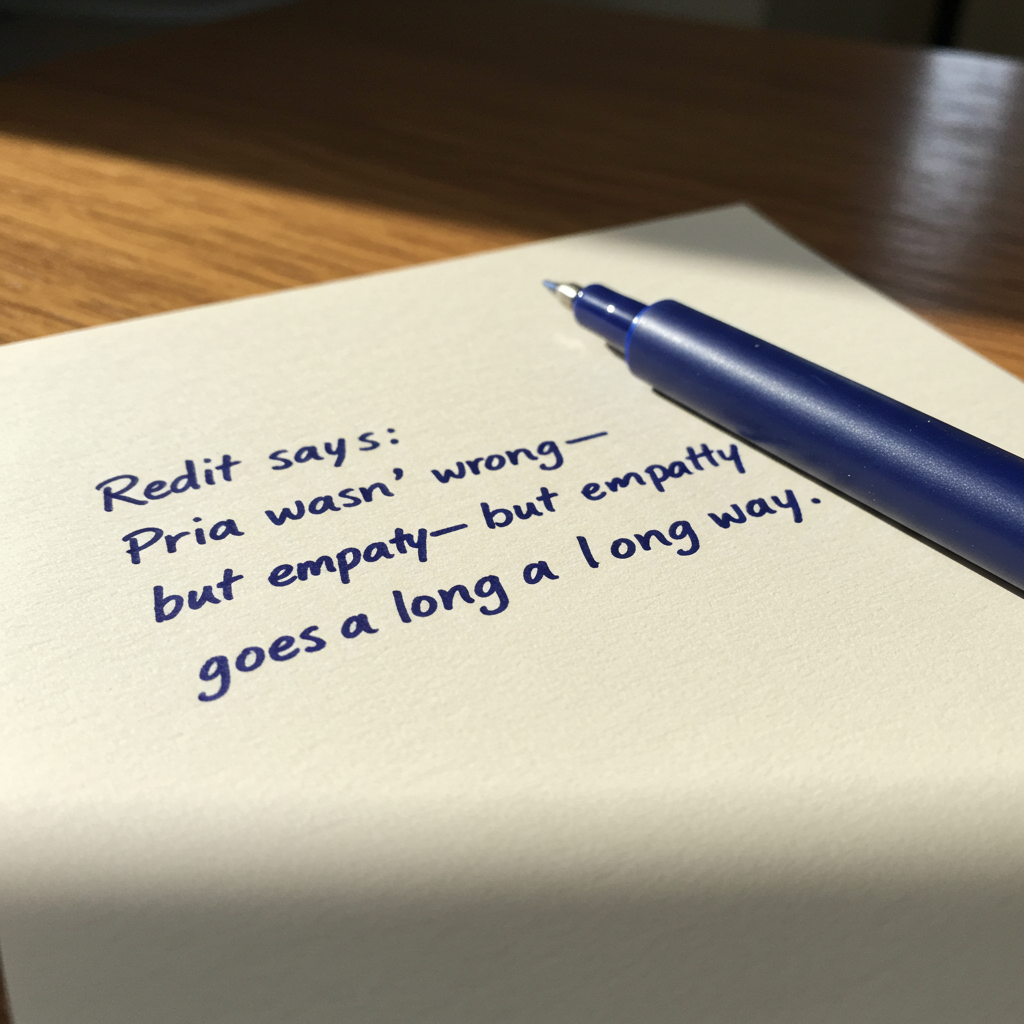 Redit says:
Pria wasn' wrong—
but empaty— but empatty
goes a long a long way.